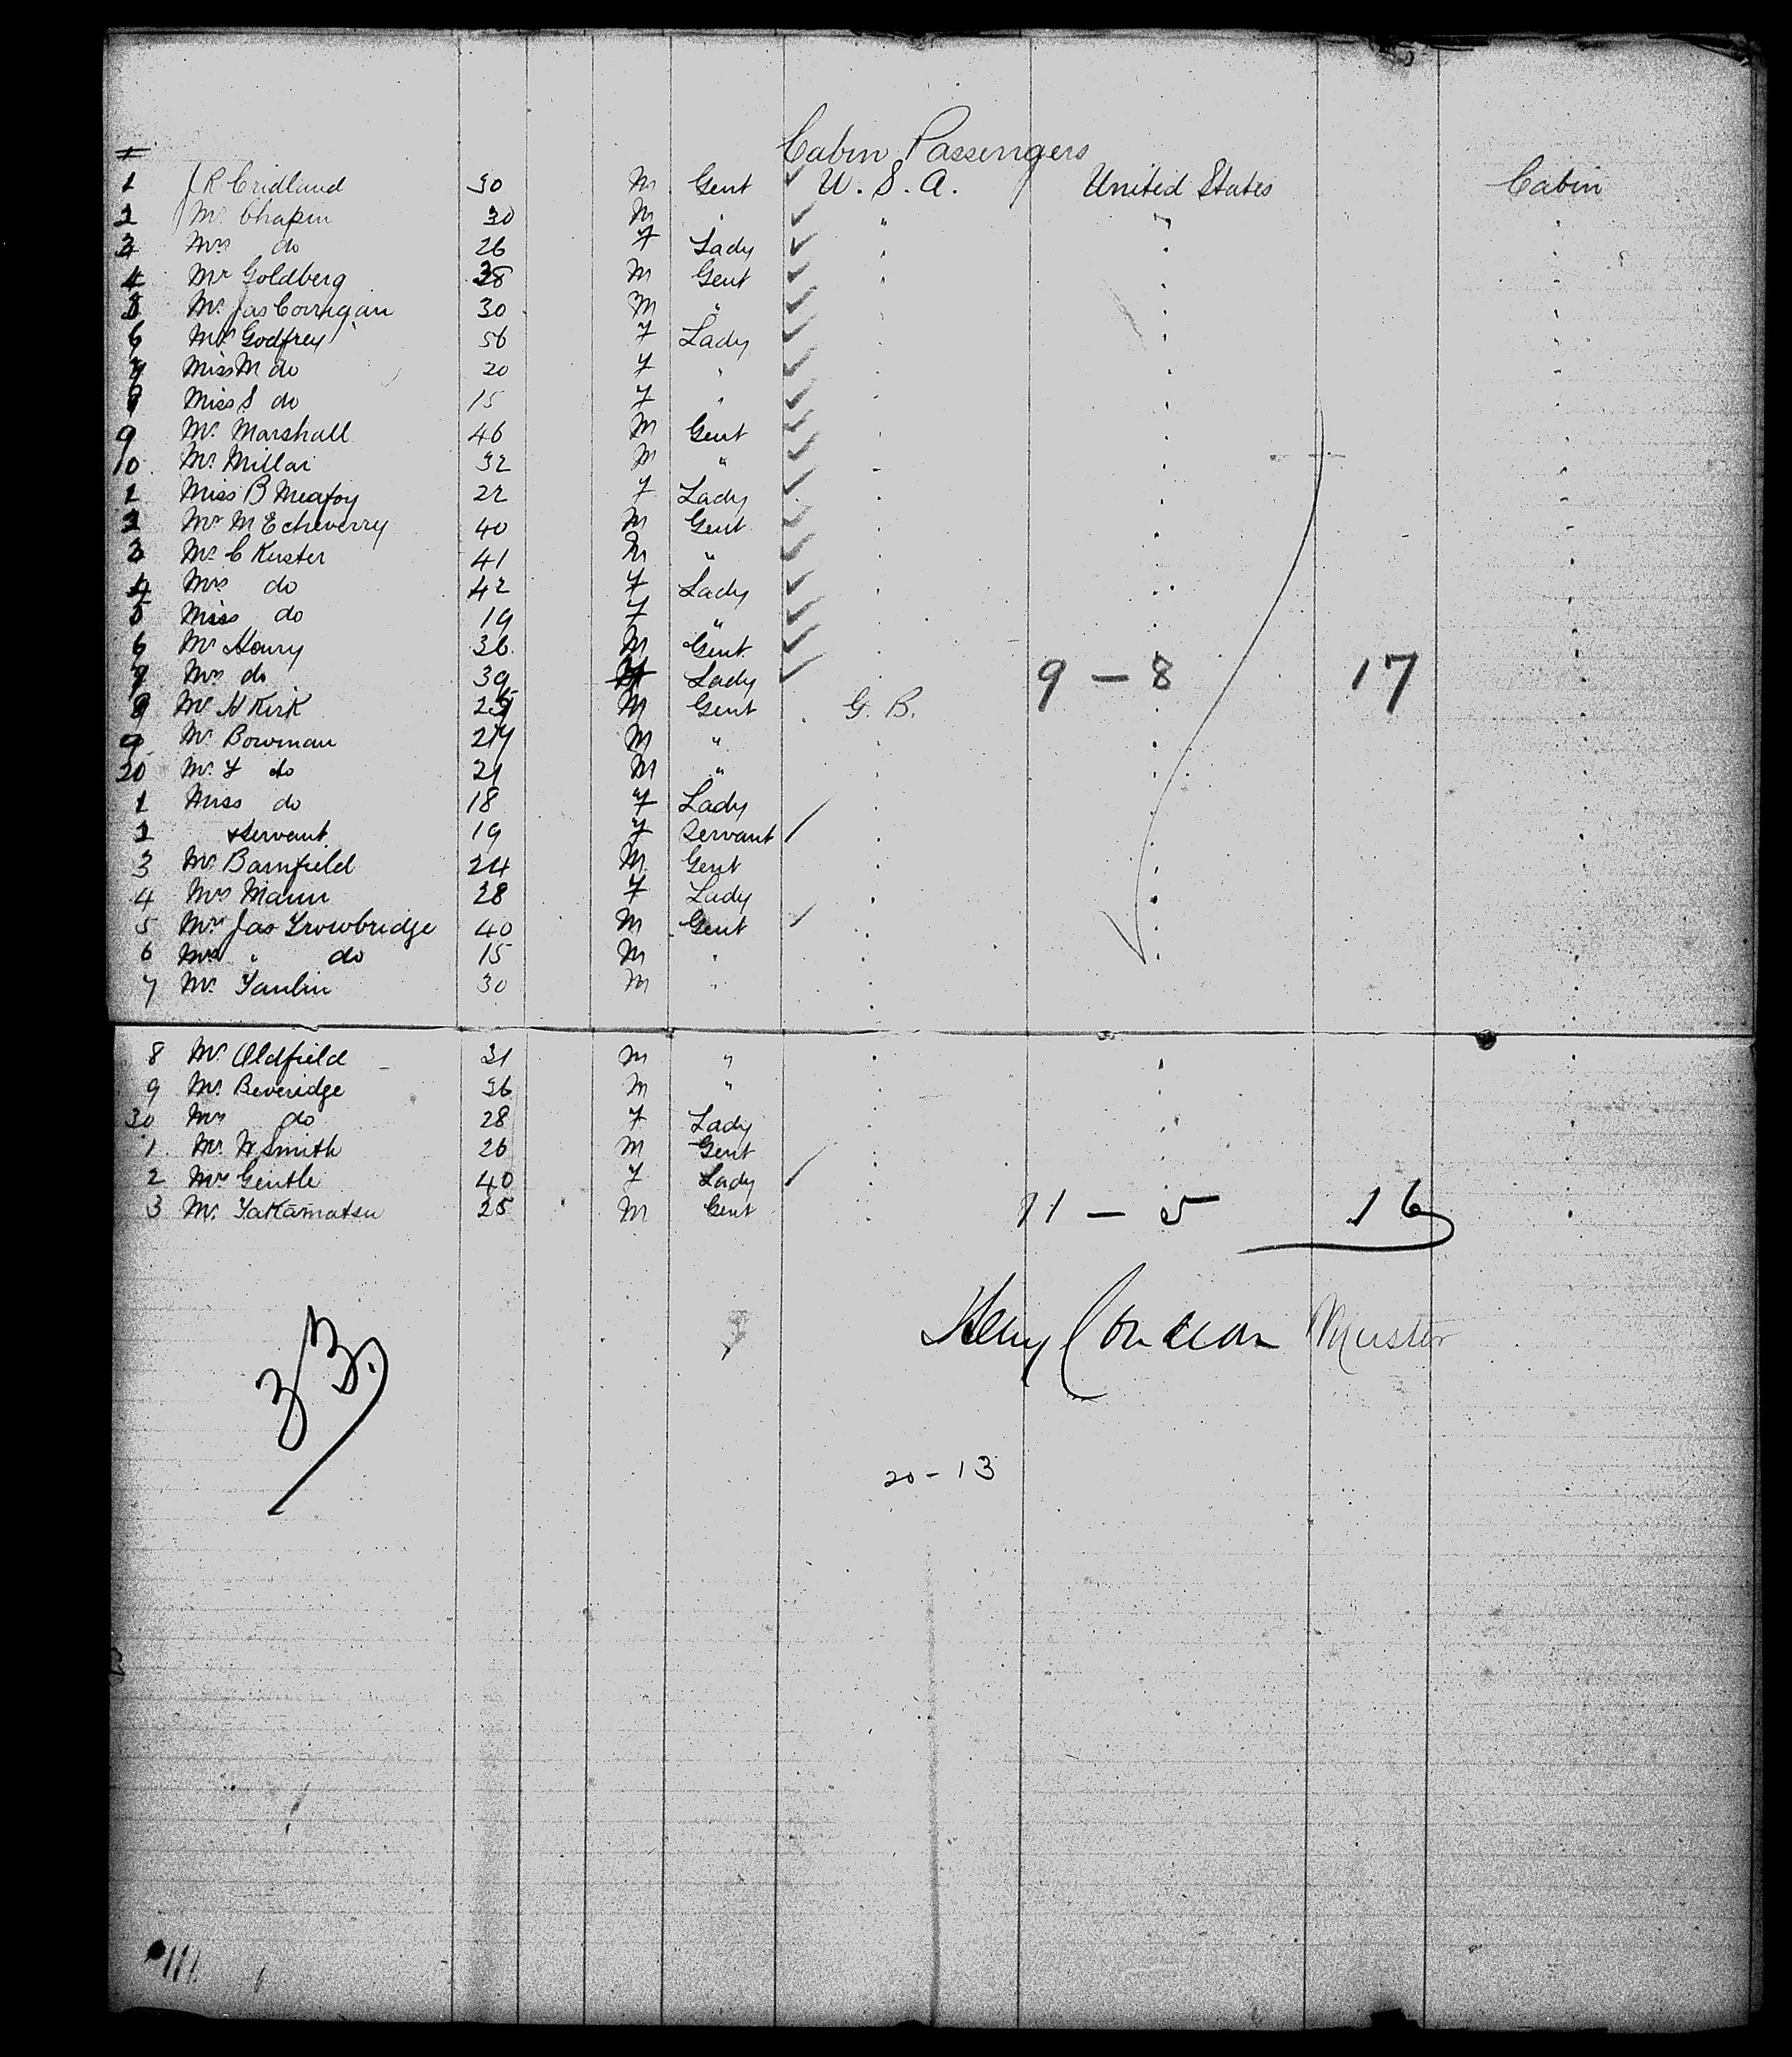 Cabin Passengers
1 J R Cridland 30 M Gent U. S. A. United States Cabin
2 Mr Chapin 30 M " " "
3 Mrs do 26 F Lady
4 Mr Goldberg 38 M Gent
5 Mr Jas Corrigan 30 M "
6 Mrs Godfrey 56 F Lady
7 Miss M do 20 F "
8 Miss S do 15 F "
9 Mr Marshall 46 M Gent
10 Mr Millar 32 M "
1 Miss B 22 F Lady
2 Mr M Echeverry 40 M Gent
3 Mr C Kuster 41 M "
4 Mrs do 42 F Lady
5 Miss do 19 F "
6 Mr Henry 36 M Gent
7 Mrs do 39 F Lady 9 - 8 17
8 Mr H Kirk M Gent G. B.
9 Mr Bowman M "
20 Mr F do 21 M "
1 Miss do 18 F Lady
2 & servant 19 F Servant
3 Mr Bamfield 24 M Gent
4 Mrs Mann 28 F Lady
5 Mr Jas Trowbridge 40 M Gent
6 " do 15 M "
7 Mr 30 M "
8 Mr Oldfield 31 M "
9 Mr Beveridge 36 M "
30 Mrs do 28 F Lady
1 Mr W Smith 26 M Gent
2 Mrs Gentle 40 F Lady
3 Mr Takamatsu 25 M Gent 11 - 5 16
Henry Master
33.
20 - 13